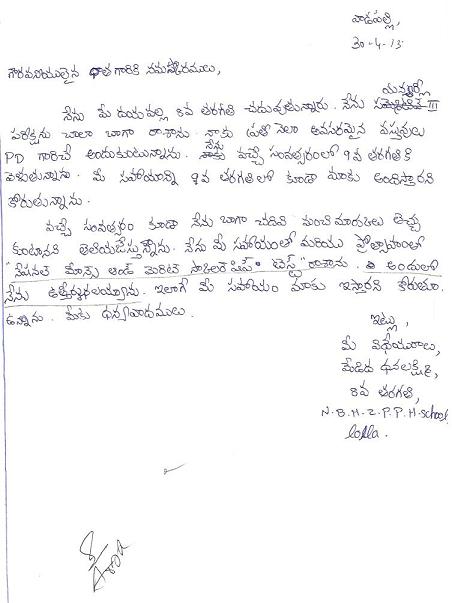 వాడపల్లి,
30-4-13.
గౌరవనీయులైన దాత గారికి నమస్కారములు,
నేను మీ దయవల్ల 8వ తరగతి చదువుతున్నాను. నేను యాన్యువల్
పరీక్షను చాలా బాగా రాశాను. నాకు ప్రతి నెలా అవసరమైన వస్తువులు
PD గారిచే అందుకుంటున్నాను. నేను వచ్చే సంవత్సరంలో 9వ తరగతికి
వెళుతున్నాను. మీ సహాయాన్ని 9వ తరగతిలో కూడా మాకు అందిస్తారని
కోరుతున్నాను.
వచ్చే సంవత్సరం కూడా నేను బాగా చదివి మంచి మార్కులు తెచ్చు
కుంటానని తెలియజేస్తున్నాను. నేను మీ సహాయంతో మరియు ప్రోత్సాహంతో
"నేషనల్ మీన్స్ అండ్ మెరిట్ స్కాలర్ షిప్ టెస్ట్" రాశాను. అందులో
నేను ఉత్తీర్ణురాలయ్యాను. ఇలాగే మీ సహాయం మాకు ఇస్తారని కోరుతూ
ఉన్నాను. మీకు ధన్యవాదములు.
ఇట్లు,
మీ విధేయురాలు,
మేడిద ధనలక్ష్మి,
8వ తరగతి,
N.B.H.Z.P.P.H.school
lolla.